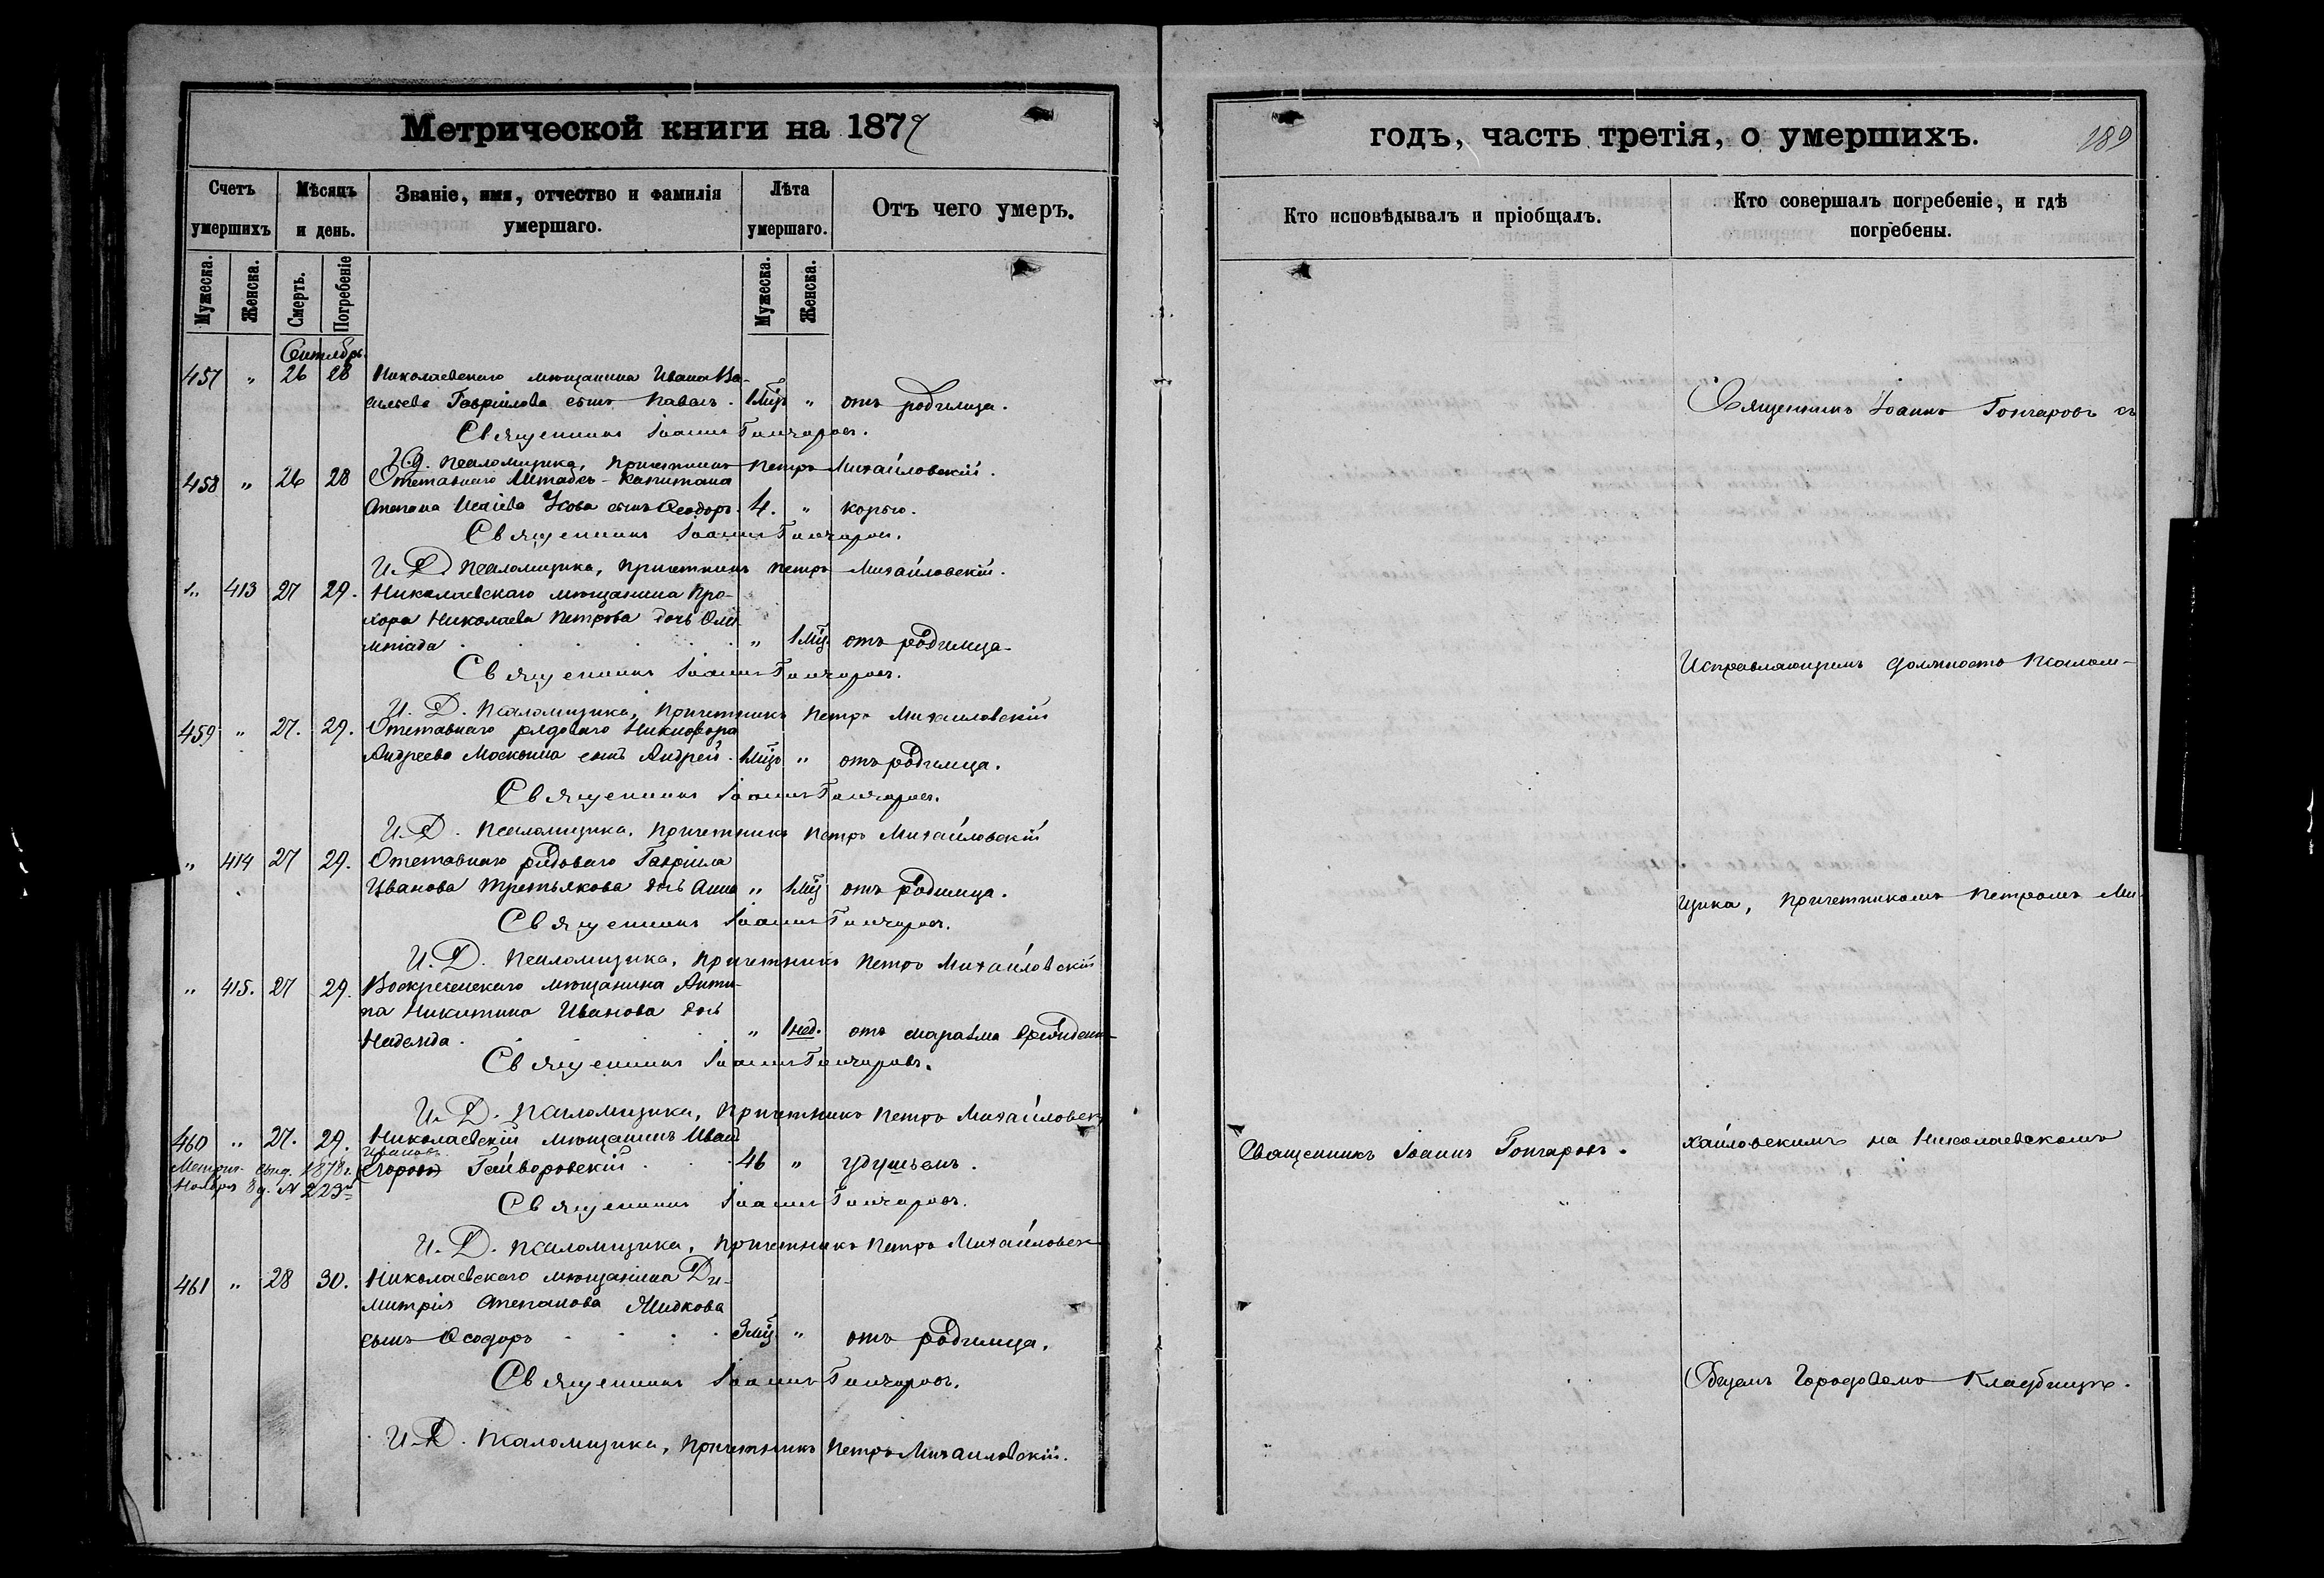 Метрической книги на 1877
Счетъ умершихъ
Мѣсяцъ и день.
Званіе, имя, отчество и фамилія умершаго.
Лѣта умершаго.
Отъ чего умеръ.
Мужеска.
Женска.
Смерть.
Погребеніе
Мужеска.
Женска.
Сентябрь
457 " 26 28 Николаевскаго мѣщанина Ивана Ва-
сильева Гавріилова сынъ Павелъ. 1 мѣц. " отъ родимца.
Священникъ Іоаннъ Гончаровъ.
И.Д. Псаломщика, Причетникъ Петръ Михайловскій.
458 " 26 28 Отставнаго Штабсъ-Капитана
Степана Исаіева сынъ Ѳеодоръ. 4. " корью.
Священникъ Іоаннъ Гончаровъ.
И.Д. Псаломщика, Причетникъ Петръ Михайловскій.
" 413 27 29. Николаевскаго мѣщанина Про-
хора Николаева Петрова дочь Оли-
мпіада . . . " 1 мѣц. отъ родимца.
Священникъ Іоаннъ Гончаровъ.
И.Д. Псаломщика, Причетникъ Петръ Михайловскій
459 " 27. 29. Отставнаго рядоваго Никифора
Андреева Москвина сынъ Андрей. 1 мѣц. " отъ родимца.
Священникъ Іоаннъ Гончаровъ.
И.Д. Псаломщика, Причетникъ Петръ Михайловскій
" 414 27 29. Отставнаго рядоваго Гавріила
Иванова Третьякова дочь Анна " 1 мѣц. отъ родимца.
Священникъ Іоаннъ Гончаровъ.
И.Д. Псаломщика, Причетникъ Петръ Михайловскій
" 415. 27 29. Воскресенскаго мѣщанина Анти-
па Никитина Иванова дочь
Надежда. . . " 1 нед. отъ маразма
Священникъ Іоаннъ Гончаровъ.
И.Д. Псаломщика, Причетникъ Петръ Михайловск
460 " 27. 29. Николаевскій мѣщанинъ Иванъ
Ивановъ
Метрич. свид. 1878 г. Егоровъ Гайворовскій . . 46 " удушьемъ.
Ноября 8 д. № 223
Священникъ Іоаннъ Гончаровъ.
И.Д. Псаломщика, Причетникъ Петръ Михайловск
461 " 28 30. Николаевскаго мѣщанина Ди-
митрія Степанова Жидкова
сынъ Ѳеодоръ . . . 3 мѣц. " отъ родимца.
Священникъ Іоаннъ Гончаровъ.
И.Д. Псаломщика, Причетникъ Петръ Михайловскій.
годъ, часть третія, о умершихъ.
189
Кто исповѣдывалъ и пріобщалъ.
Кто совершалъ погребеніе, и гдѣ погребены.
Священникъ Іоаннъ Гончаровъ съ
Исправляющимъ должность Псалом-
щика, Причетникомъ Петромъ Ми-
Священникъ Іоаннъ Гончаровъ.
хайловскимъ на Николаевскомъ
Общемъ Городовомъ Кладбищѣ.